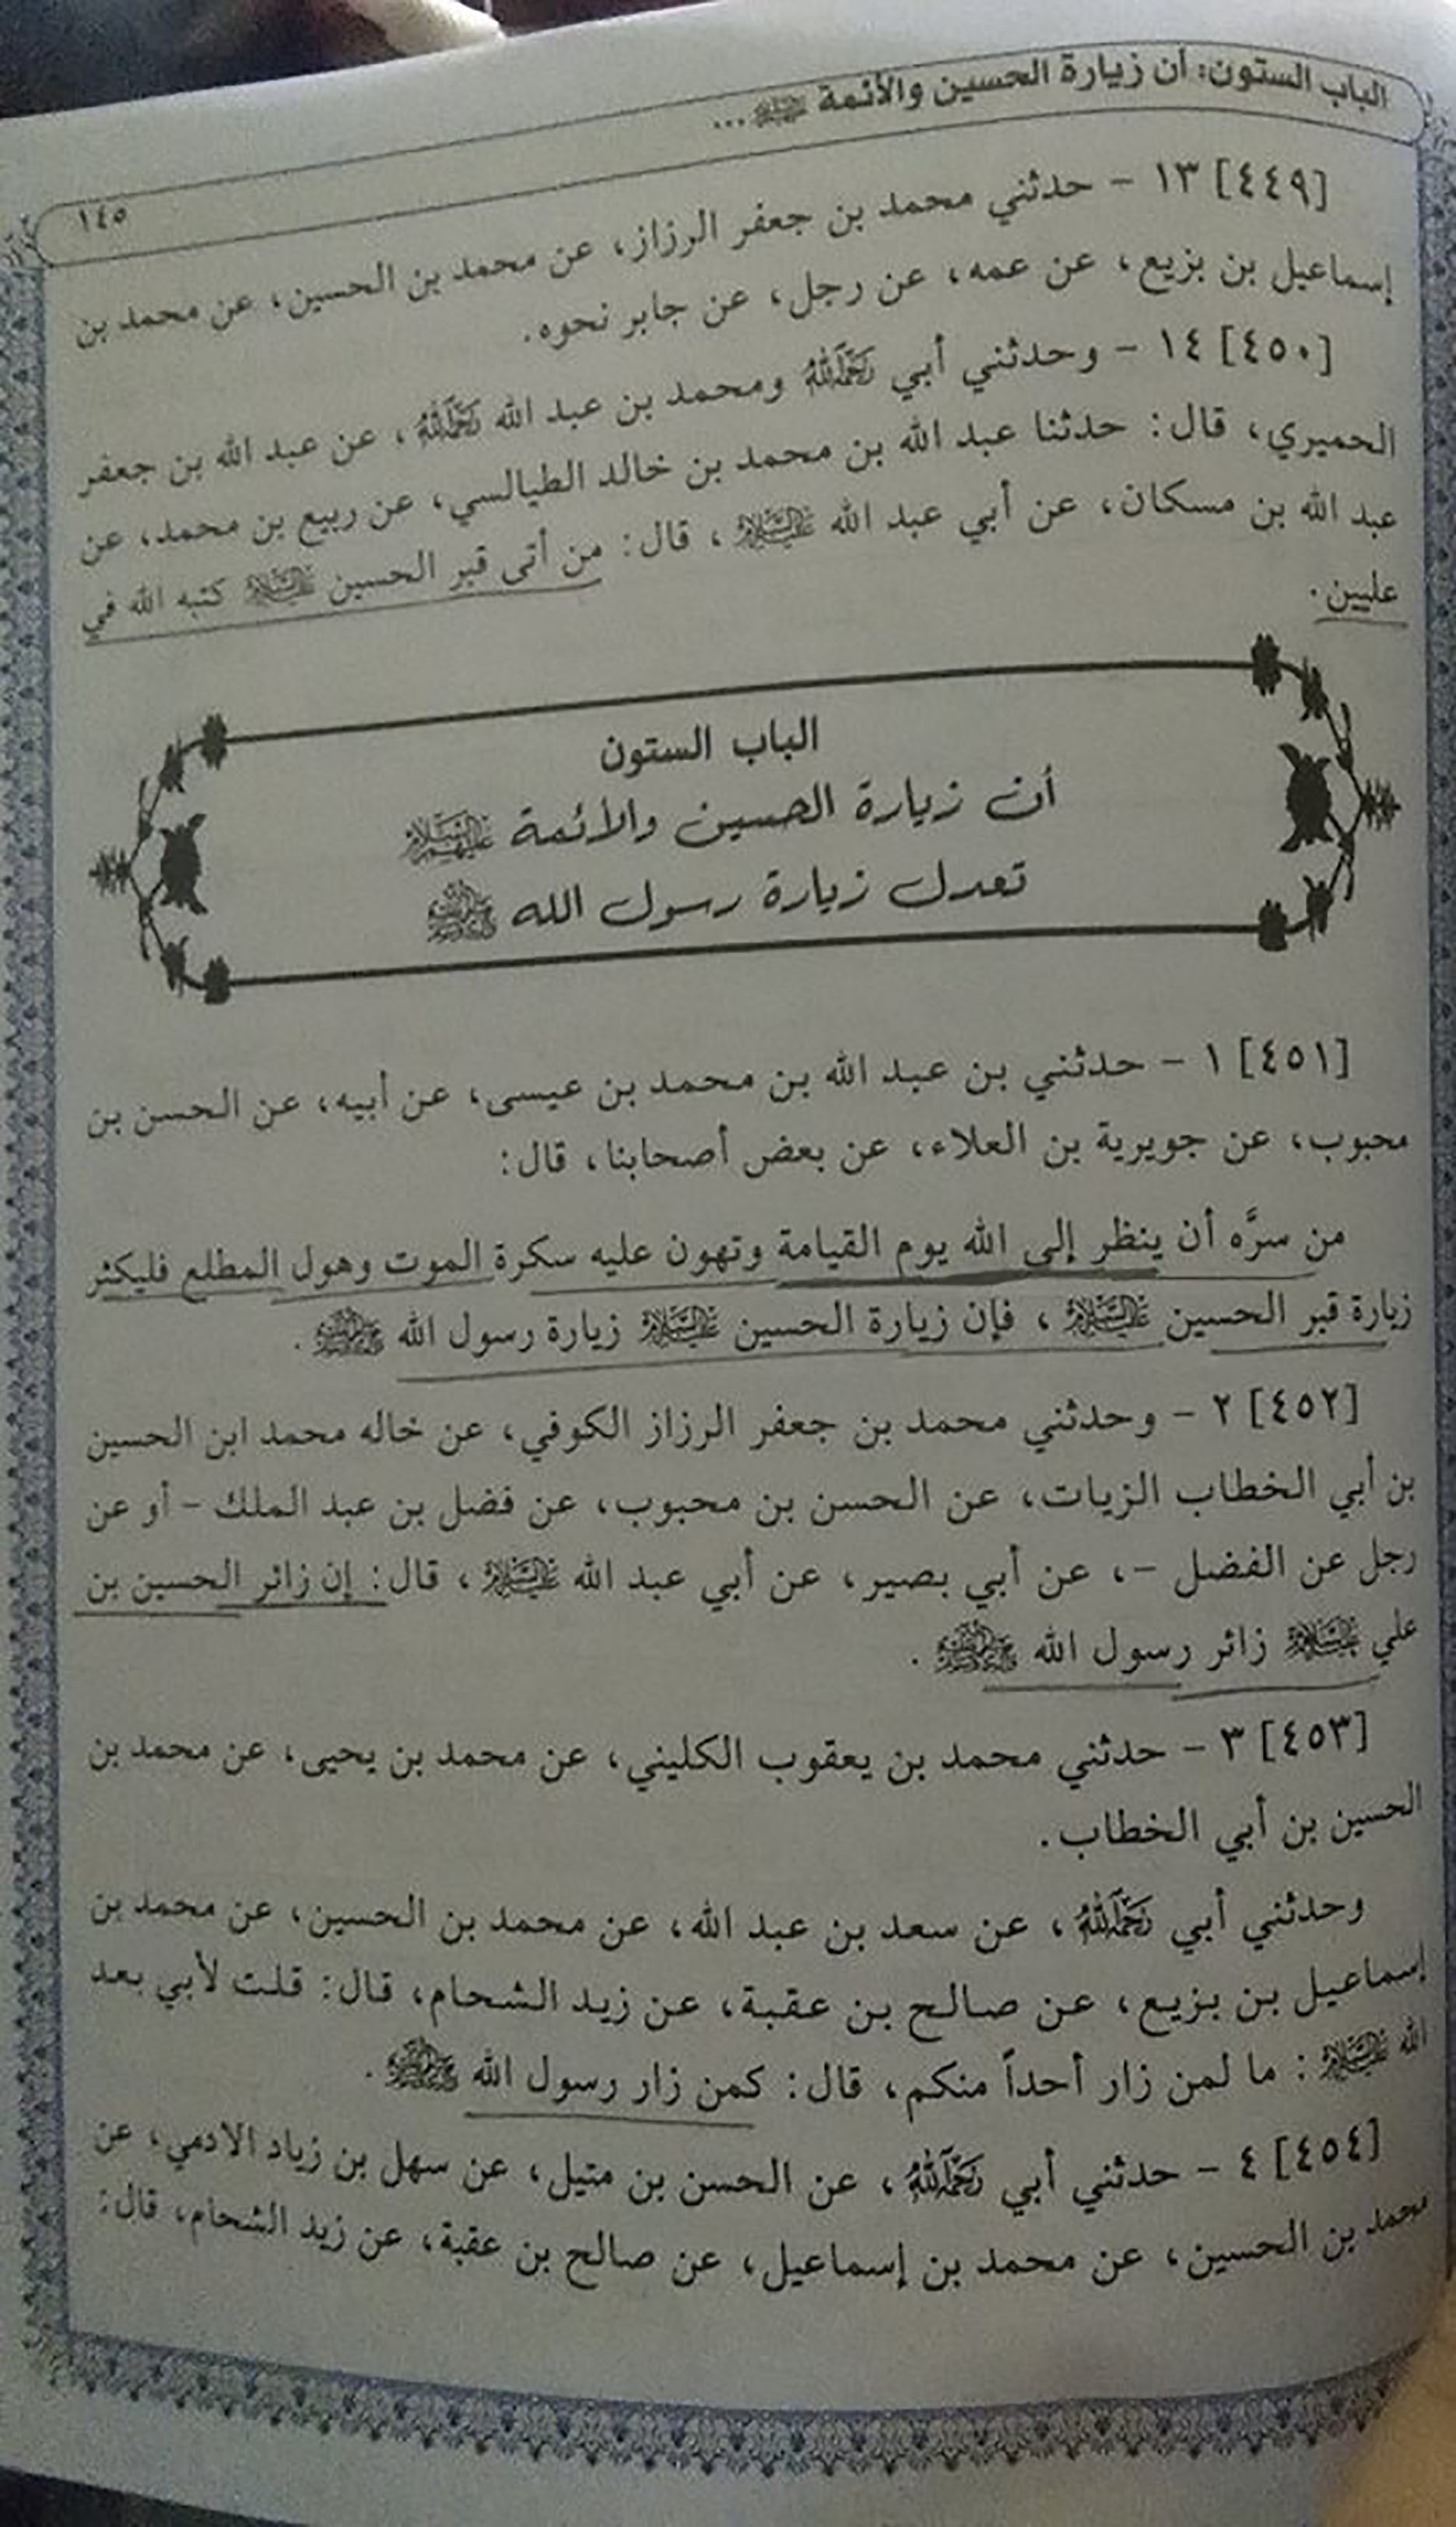 الباب الستون: أن زيارة الحسين والأئمة ﷺ ...
١٤٥
[٤٤٩] ١٣ - حدثني محمد بن جعفر الرزاز، عن محمد بن الحسين، عن محمد بن
إسماعيل بن بزيع، عن عمه، عن رجل، عن جابر نحوه.
[٤٥٠] ١٤ - وحدثني أبي رَحِمَهُ اللهُ ومحمد بن عبد الله رَحِمَهُ اللهُ، عن عبد الله بن جعفر
الحميري، قال: حدثنا عبد الله بن محمد بن خالد الطيالسي، عن ربيع بن محمد، عن
عبد الله بن مسكان، عن أبي عبد الله عليه السلام، قال: من أتى قبر الحسين عليه السلام كتبه الله في
عليين.
الباب الستون
أن زيارة الحسين والأئمة عليهم السلام
تعدل زيارة رسول الله ﷺ
[٤٥١] ١ - حدثني بن عبد الله بن محمد بن عيسى، عن أبيه، عن الحسن بن
محبوب، عن جويرية بن العلاء، عن بعض أصحابنا، قال:
من سرَّه أن ينظر إلى الله يوم القيامة وتهون عليه سكرة الموت وهول المطلع فليكثر
زيارة قبر الحسين عليه السلام، فإن زيارة الحسين عليه السلام زيارة رسول الله ﷺ.
[٤٥٢] ٢ - وحدثني محمد بن جعفر الرزاز الكوفي، عن خاله محمد ابن الحسين
بن أبي الخطاب الزيات، عن الحسن بن محبوب، عن فضل بن عبد الملك - أو عن
رجل عن الفضل -، عن أبي بصير، عن أبي عبد الله عليه السلام، قال: إن زائر الحسين بن
علي عليه السلام زائر رسول الله ﷺ.
[٤٥٣] ٣ - حدثني محمد بن يعقوب الكليني، عن محمد بن يحيى، عن محمد بن
الحسين بن أبي الخطاب.
وحدثني أبي رَحِمَهُ اللهُ، عن سعد بن عبد الله، عن محمد بن الحسين، عن محمد بن
إسماعيل بن بزيع، عن صالح بن عقبة، عن زيد الشحام، قال: قلت لأبي بعد
الله عليه السلام: ما لمن زار أحداً منكم، قال: كمن زار رسول الله ﷺ.
[٤٥٤] ٤ - حدثني أبي رَحِمَهُ اللهُ، عن الحسن بن متيل، عن سهل بن زياد الادمي، عن
محمد بن الحسين، عن محمد بن إسماعيل، عن صالح بن عقبة، عن زيد الشحام، قال: